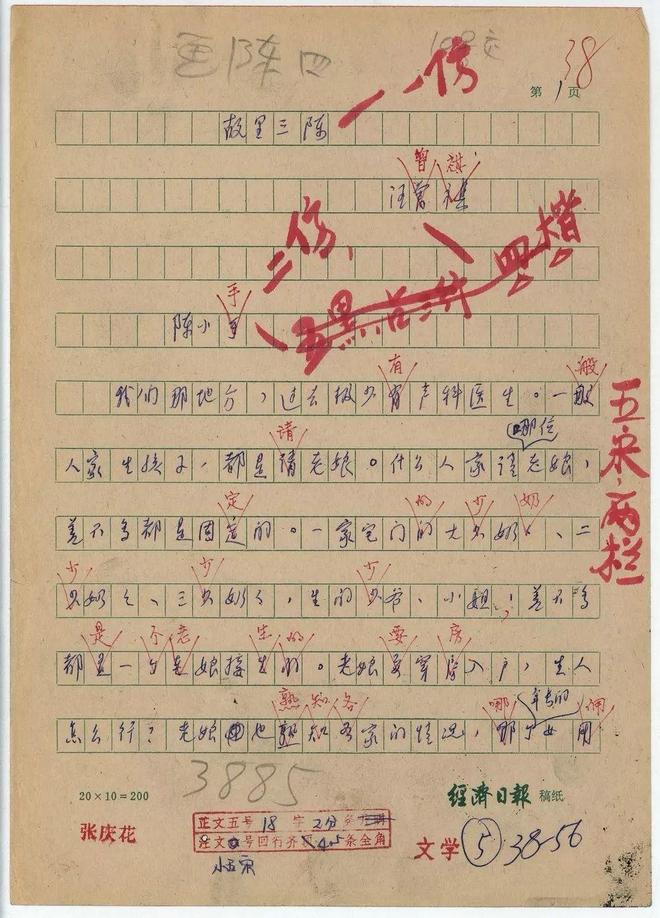 38
一份
第1页
故里三陈
曾祺
汪曾祺
二份、
四楷
手
陈小手
有 般
我们那地方，过去极少有产科医生。一般
请 哪位
人家生孩子，都是请老娘。什么人家请老娘，
定 的 少 奶
差不多都是固定的。一家宅门的大少奶奶、二
少 少 少
少奶奶、三少奶奶，生的少爷、小姐，差不多
是 个老 生的 要 房
都是一个老娘接生的。老娘要穿房入户，生人
熟知各 哪 年长的 佣
怎么行？老娘也熟知各家的情况，哪个女用
五宋、两栏
3885
20×10=200
经济日报 稿纸
张庆花
正文五号 18 字 2分
注文 号回行齐 45 条全角
小五宋
文学 ⑤ 38-56